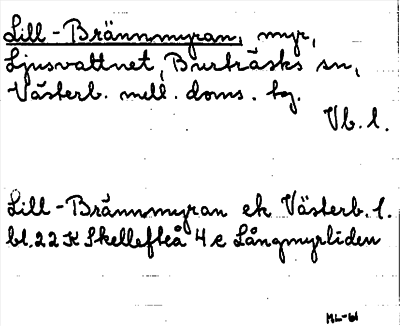 Lill-Brännmyran, myr,
Ljusvattnet, Burträsks sn,
Västerb. mell. doms. hg.
Vb. l.
Lill-Brännmyran ek Västerb. l.
bl. 22 K Skellefteå 4 c Långmyrliden
ML-61